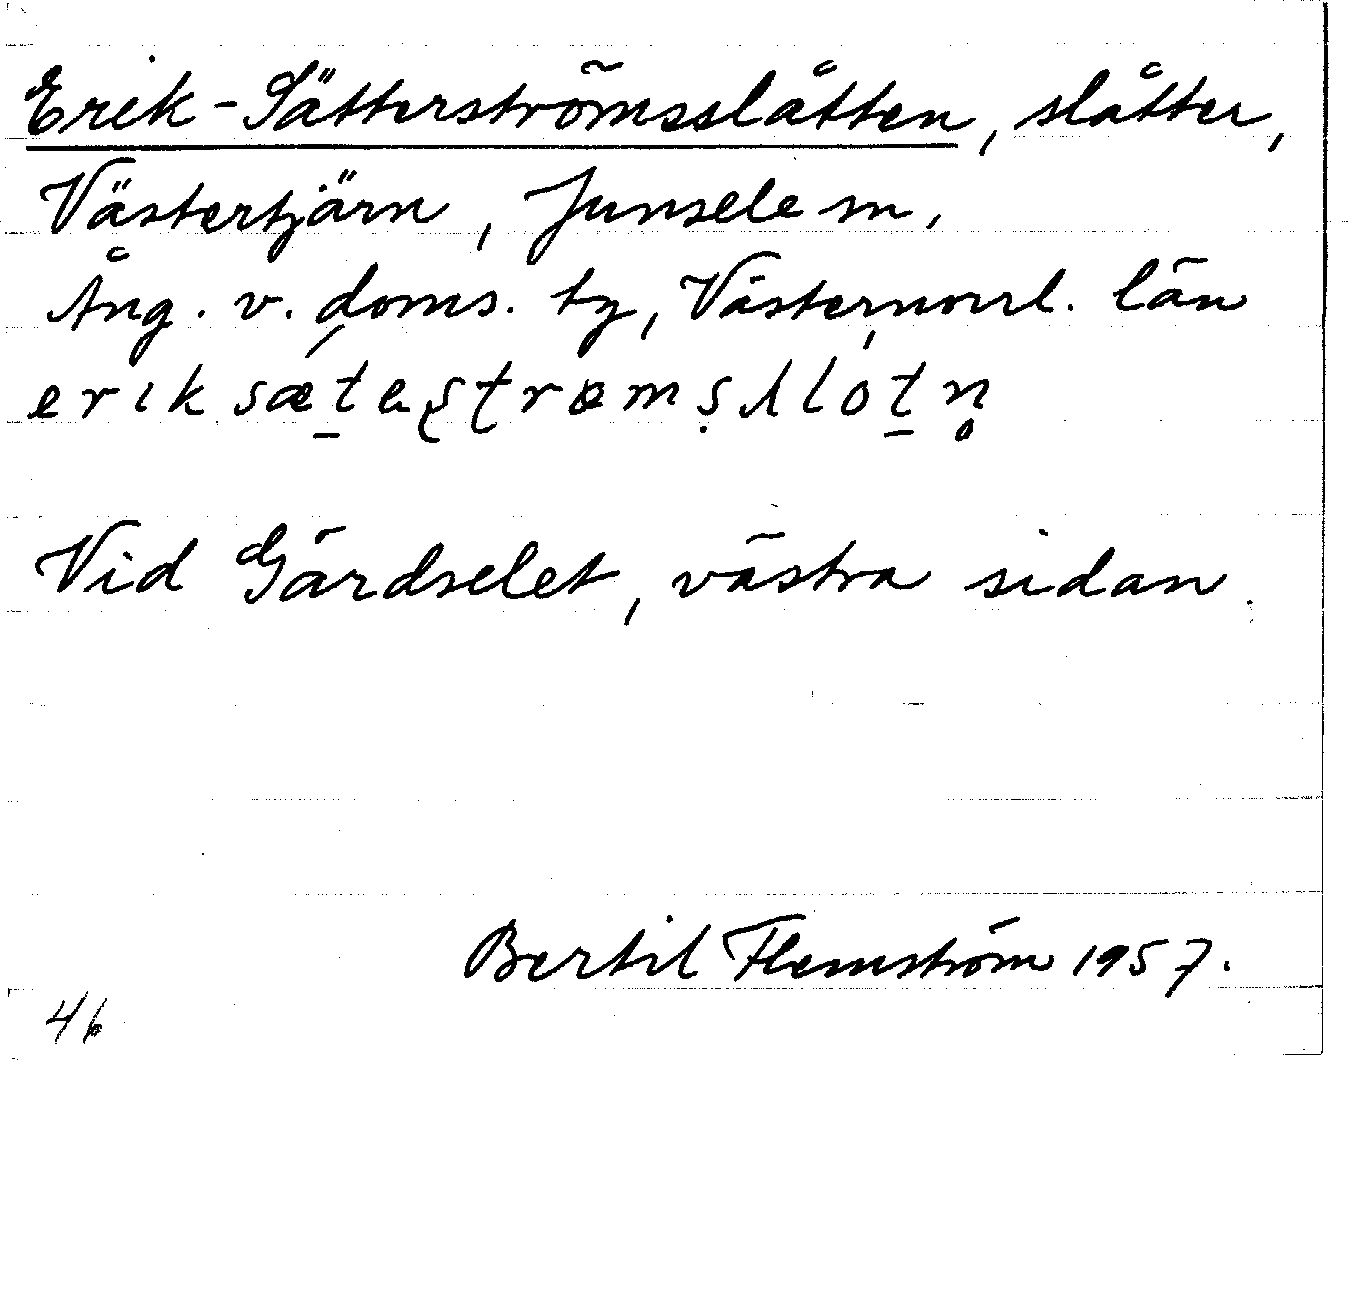 Erik-Sätterströmsslåtten, slåtter,
Västertjärn, Junsele sn,
Ång. v. doms. tg, Västernorrl. län
erik sætestrømsllotn
Vid Gärdselet, västra sidan.
Bertil Flemström 1957.
46